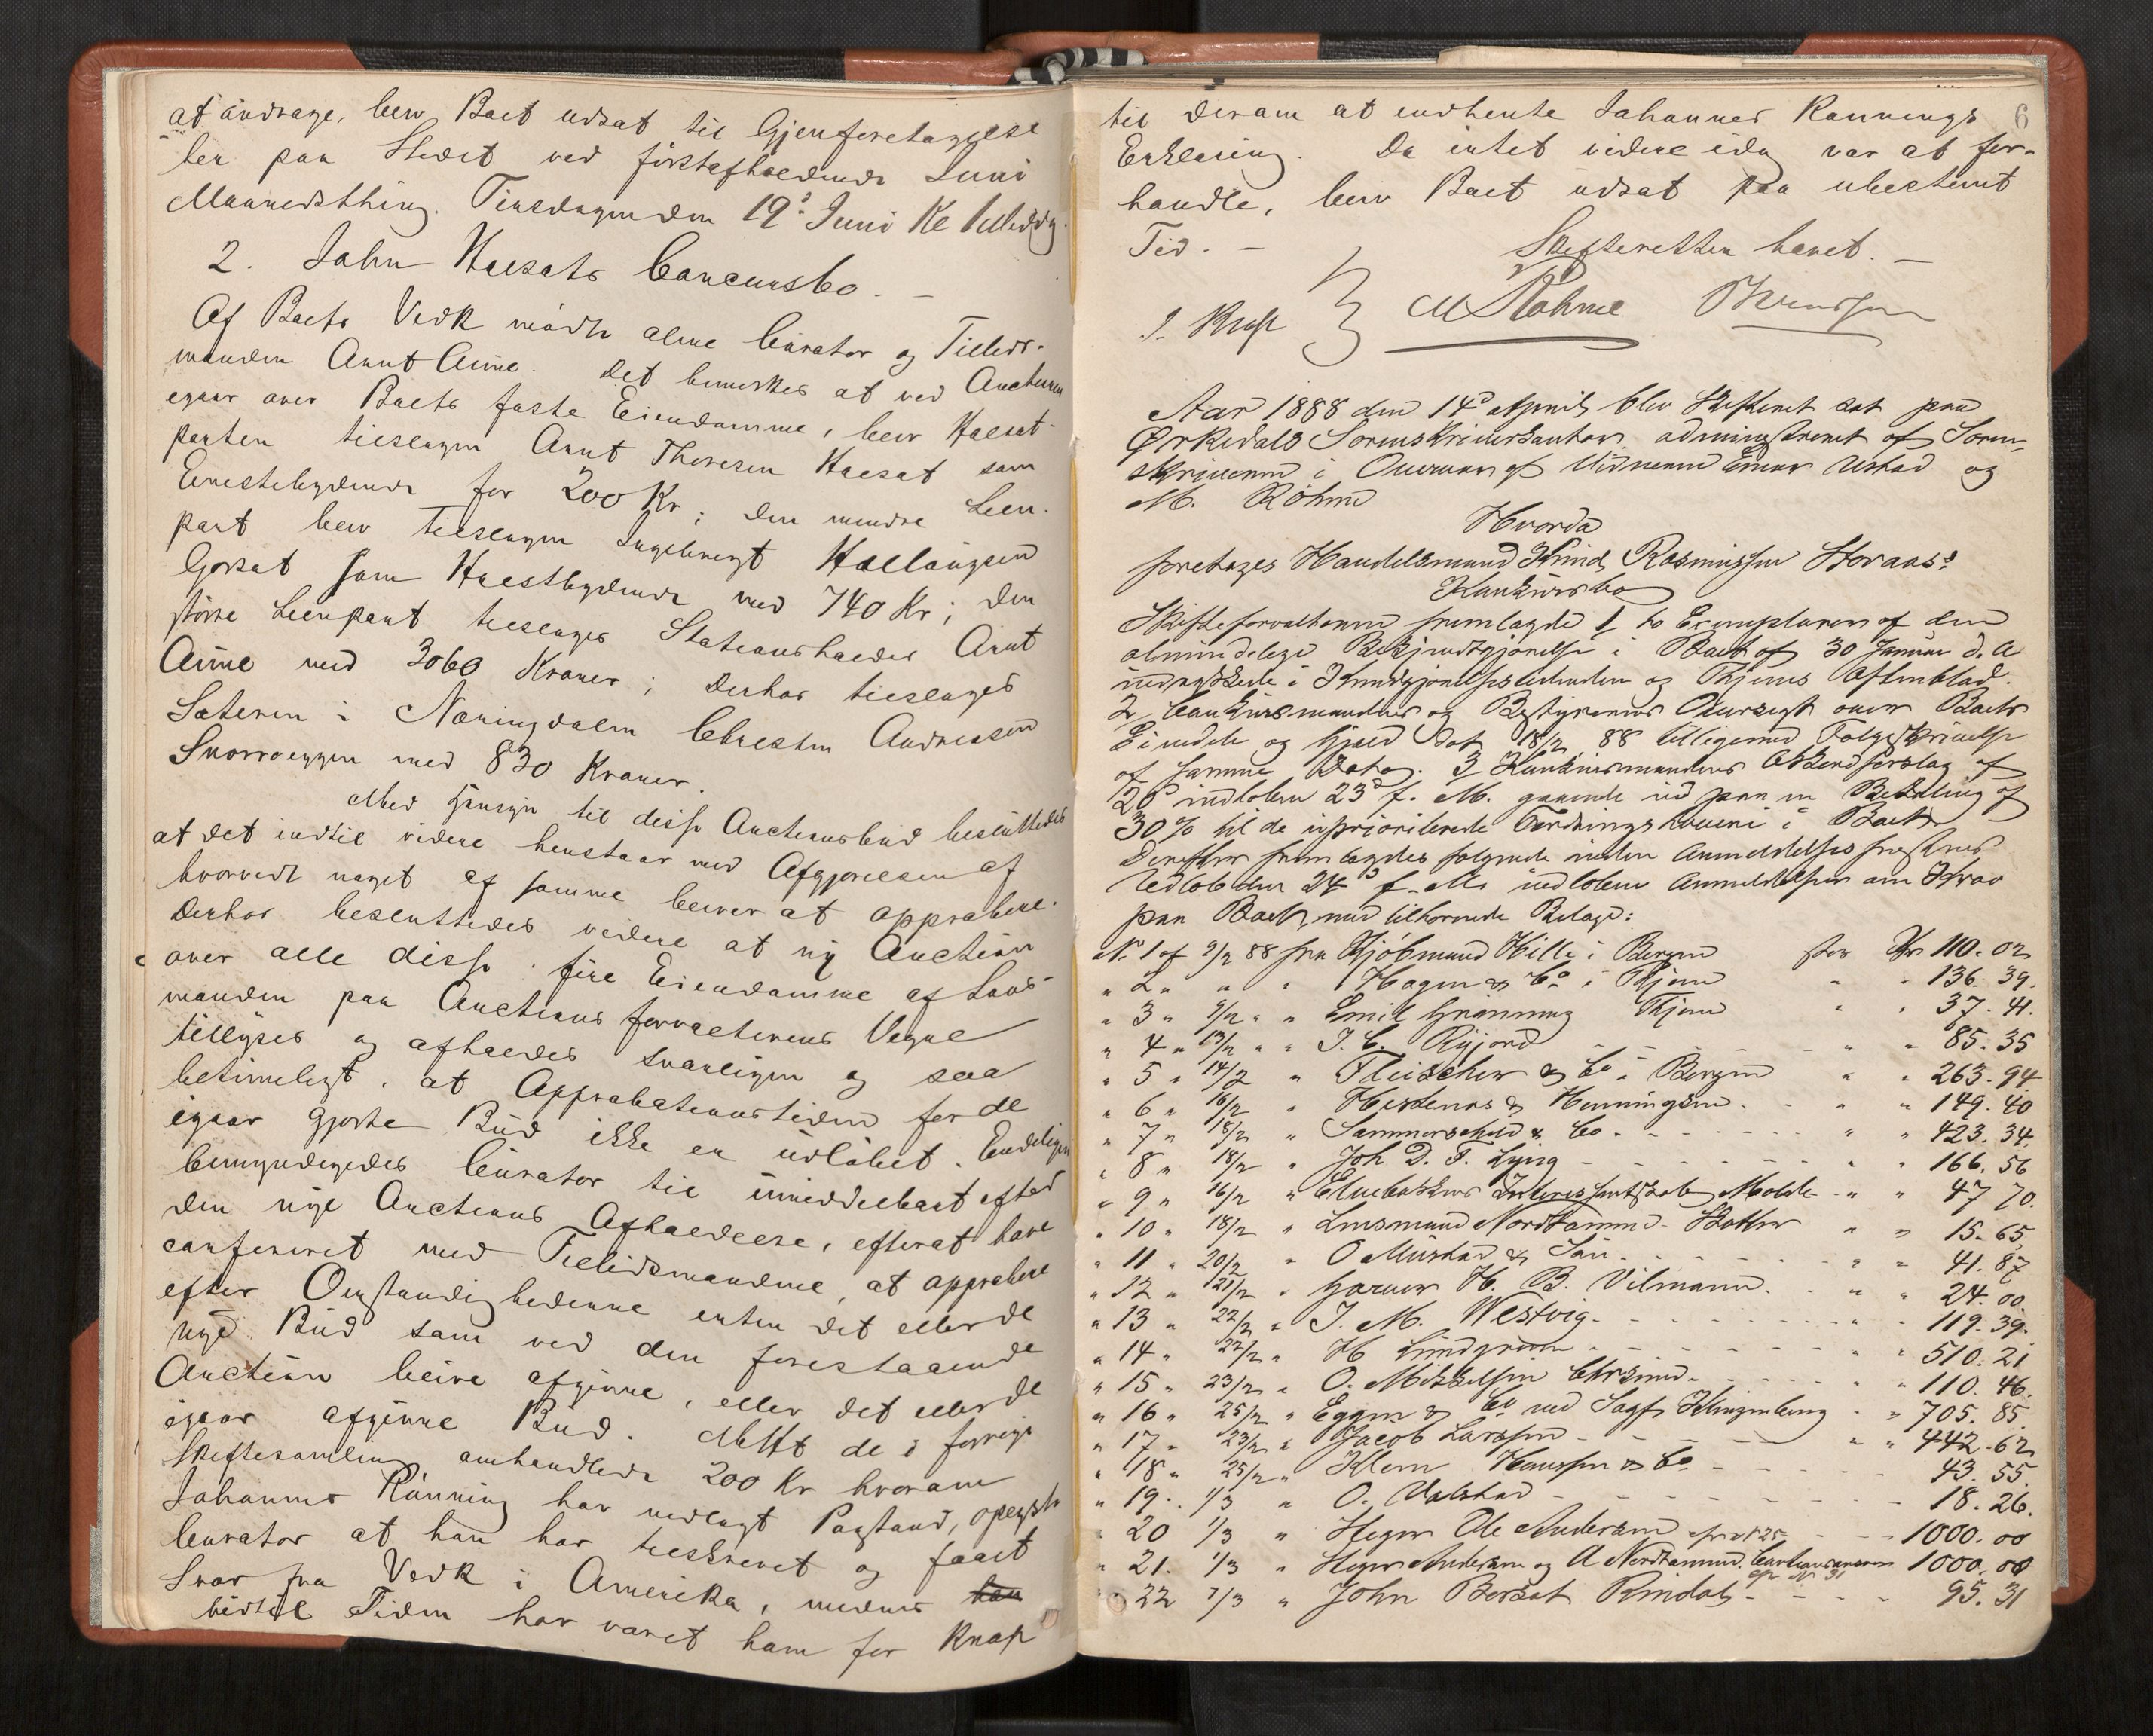 at andrage, blev Boet udsat til Gjenforetagelse
her paa Stedet ved førstafholdende Juni
Maanedsthing. Tirsdagen den 19de Juni Kl 1 Middag.
2. John Halsets Concursbo. —
Af Boets Vedk mødte alene Curator og Tillids-
manden Arnt Aune. Det bemerkes at ved Auctionen
igaar over Boets faste Eiendomme, blev Halset-
parten tilslagen Arnt Thoresen Halset som
Enestebydende for 200 Kr; den mindre Leen-
part blev tilslagen Ingebrigt
Gorset som Høestbydende med 740 Kr; den
større Leenpart tilslages Stationsholder Arnt
Aune med 3060 Kroner; derhos tilslages
Sæteren i Næringdalen Christen Andreasen
Snoeggen med 830 Kroner.
Med Hensyn til disse Auctionsbud besluttedes
at det indtil videre henstaar med Afgjørelsen af
hvorvidt noget af samme bliver at approbere.
Derhos besluttedes videre at ny Auction
over alle disse fire Eiendomme af Lens-
manden paa Auctionsforvalterens Vegne
tillyses og afholdes snarligen og saa
betimeligt, at Approbationstiden for de
igaar gjorte Bud ikke er udløbet. Endeligen
bemyndigedes Curator til umiddelbart efter
den nye Auctions Afholdelse, efterat have
confereret med Tillidsmændene, at approbere
efter Omstændighederne enten det eller de
nye Bud som ved den forestaaende
Auction blive afgivne, eller det eller de
igaar afgivne Bud. Mht de i forrige
Skiftesamling omhandlede 200 Kr hvorom
Johannes Rønning har nedlagt Paastand, oplyste
Curator at han har tilskrevet og faaet
Svar fra Vedk i Amerika, medens
hidtil Tiden har været ham for knap
6
til derom at indhente Johannes Rønnings
Erklæring. Da intet videre idag var at for-
handle, blev Boet udsat paa ubestemt
Tid. —
Skifteretten hævet. —
J. Krog M Røhme
Aar 1888 den 14de April blev Skifteret sat paa
Ørkedals Sorenskriverkontor administreret af Soren-
skriveren i Overvær af Vidnerne Einar Ustad og
M. Röhme
Hvorda
foretoges Handelsmand Knud Rasmussen Storaas's
Konkursbo
Skifteforvalteren fremlagde 1, to Exemplarer af den
almindelige Bekjendtgjørelse i Boet af 30 Januar d. A
indrykkede i Kundgjørelsestidenden og Thjems Aftenblad.
2, Konkursmandens og Bestyrerens Oversigt over Boets
Eiendele og Gjæld dat 18/2 88 tilligemed Følgeskrivelse
af samme Dato. 3, Konkursmandens Akkordforslag af
20de indkoben 23de f. M. gaaende ud paa en Betaling af
30% til de uprioriterede Fordringshavere i Boet
Derefter fremlagdes følgende inden Anmeldelsesfristens
Udløb den 24de f. M. indløbne Anmeldelser om Krav
paa Boet, med tilhørende Bilage:
No 1 af 9/2 88 fra Kjøbmand Hille i Bergen stor Kr 110. 02
" 2 " " " Hagen & Co i Thjem " " 136. 39.
" 3 " 9/2 " " Emil Grønning Thjem " " 37. 41.
" 4 " 13/2 " " J. C. Rygjord " " 85. 35
" 5 " 14/2 " Fleischer & Co i Bergen " " 263. 94
" 6 " 16/2 " Huitenes & Henningsen " " 149. 40
" 7 " 18/2 " Sommerschild & Co " " 423. 34.
" 8 " 18/2 " Joh D. F. Lysing " " 166. 56
" 9 " 16/2 " Elvebakkens Interessentskab Molde " " 47 70.
" 10 " 18/2 " Lensmand Nordtømme " " 15. 65
" 11 " 20/2 " O Mustad & Søn " " 41. 87
" 12 " 21/2 " Garver H. B. Vilmann " " 24. 00.
" 13 " 22/2 " J. M. Westvig " 119. 39.
" 14 " 22/2 " H Lindgreen " " 510. 21
" 15 " 23/2 " O. Mikkelsen Chrsund " 110. 46.
" 16 " 25/2 " Eggen & Co ved Sagf. Klingenberg " " 705. 85
" 17 " 23/2 " Jacob Larssen " " 442. 62
" 18 " 25/2 " Klem Hanssen & Co 43. 55.
" 19 " 1/3 " O. Valstad 18. 26.
" 20 1/3 " Heger Ole Andersen cfr No 25 1000. 00
" 21. 1/3 " Hegrs Andersen og A Nordtømme. 1000. 00
cfr No 31
" 22 7/3 " John Berset Rindal 95. 31